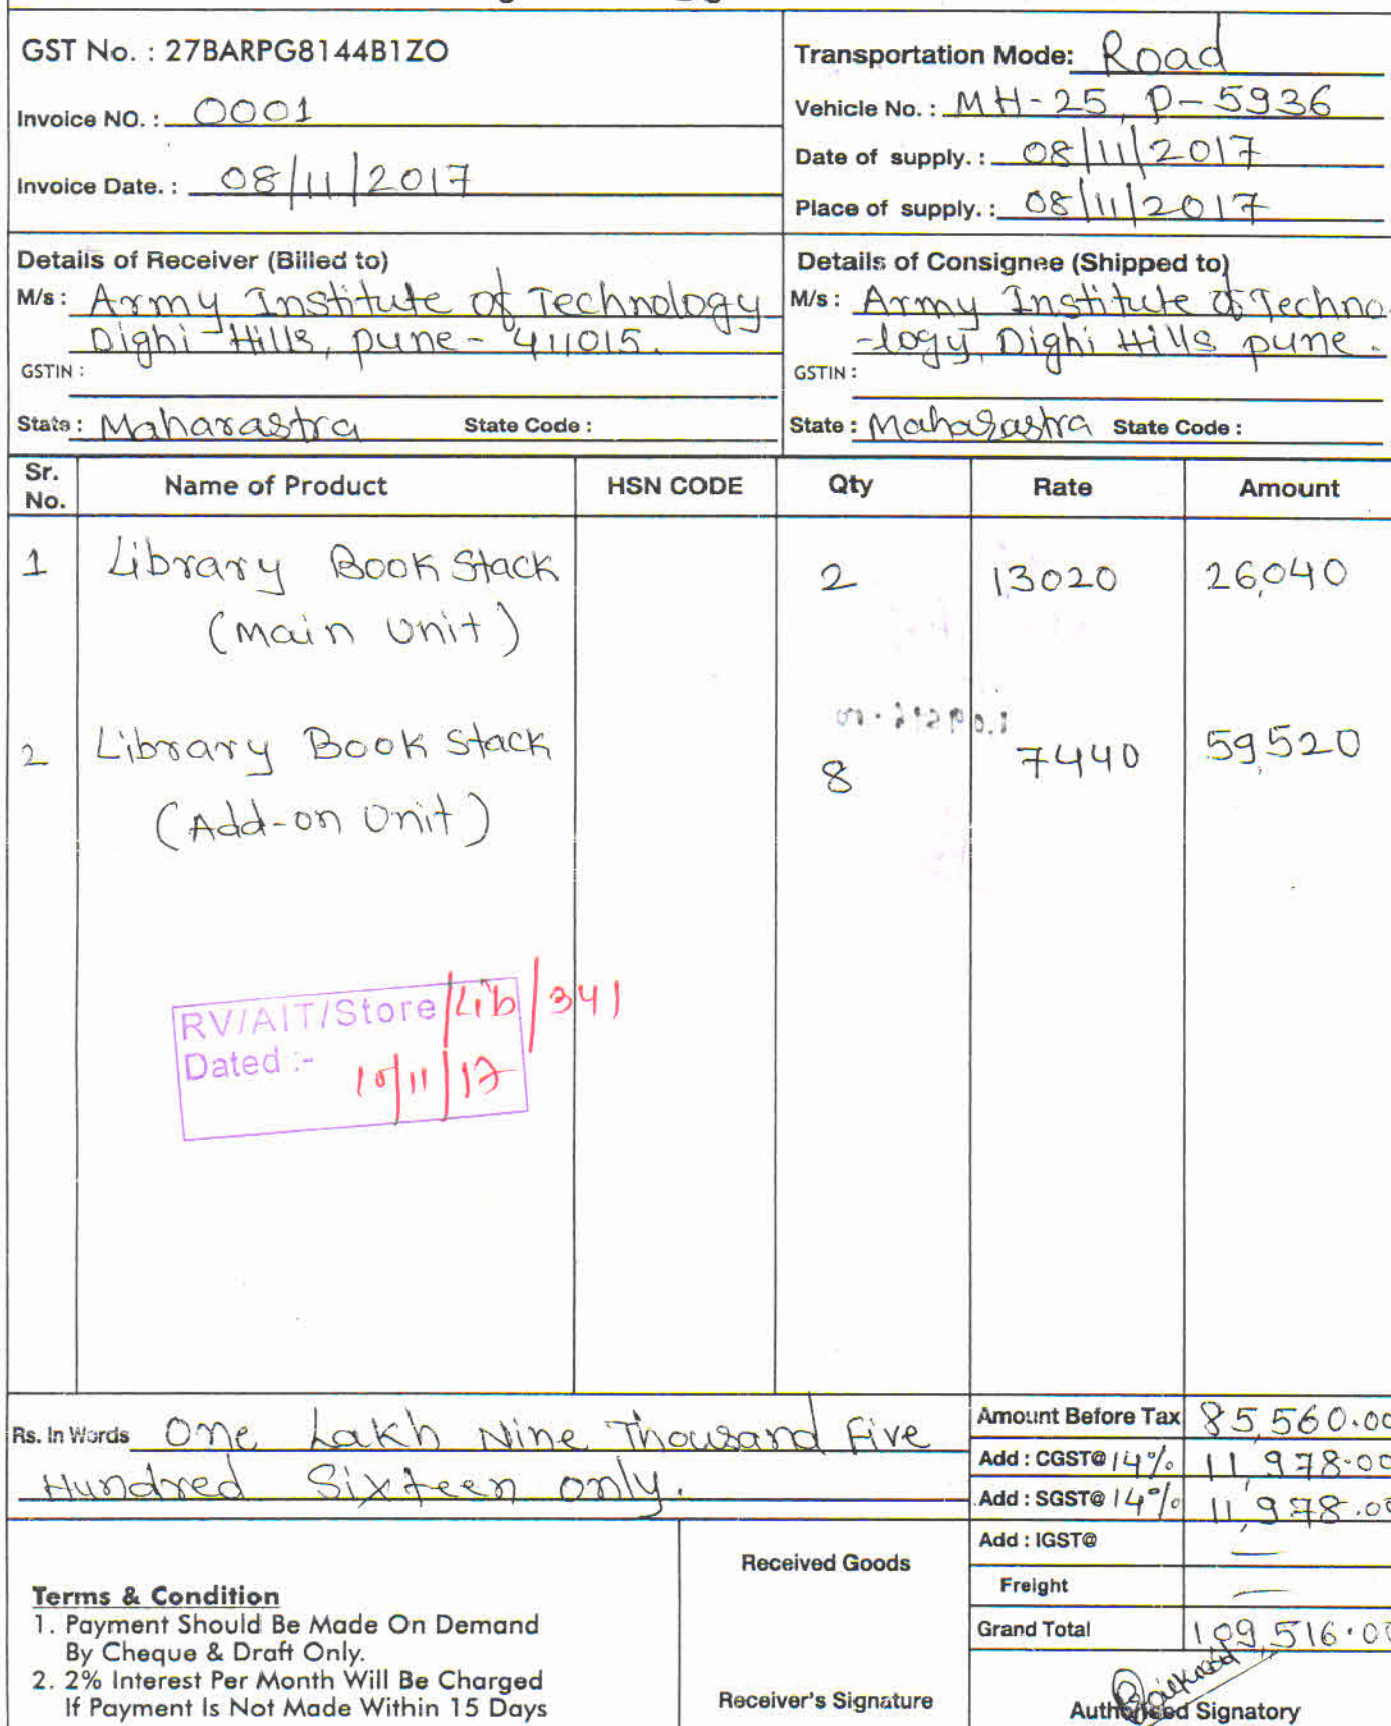 GST No. : 27BARPG8144B1ZO
Invoice NO. : 0001
Invoice Date. : 08/11/2017
Transportation Mode: Road
Vehicle No. : MH-25, P-5936
Date of supply. : 08/11/2017
Place of supply. : 08/11/2017
Details of Receiver (Billed to)
M/s : Army Institute of Technology
Dighi Hills, pune - 411015.
GSTIN :
State : Maharastra State Code :
Details of Consignee (Shipped to)
M/s : Army Institute of Techno-
-logy, Dighi Hills pune.
GSTIN :
State : Maharastra State Code :
Sr. No. Name of Product HSN CODE Qty Rate Amount
1 Library Book Stack 2 13020 26,040
(Main Unit)
2 Library Book Stack 8 7440 59,520
(Add-on Unit)
RV/AIT/Store/Lib/341
Dated :- 10/11/17
Rs. In Words One Lakh Nine Thousand Five
Hundred Sixteen only.
Amount Before Tax 85,560.00
Add : CGST@ 14% 11,978.00
Add : SGST@ 14% 11,978.00
Add : IGST@ —
Freight —
Grand Total 109,516.00
Terms & Condition
1. Payment Should Be Made On Demand
By Cheque & Draft Only.
2. 2% Interest Per Month Will Be Charged
If Payment Is Not Made Within 15 Days
Received Goods
Receiver's Signature
Authorised Signatory